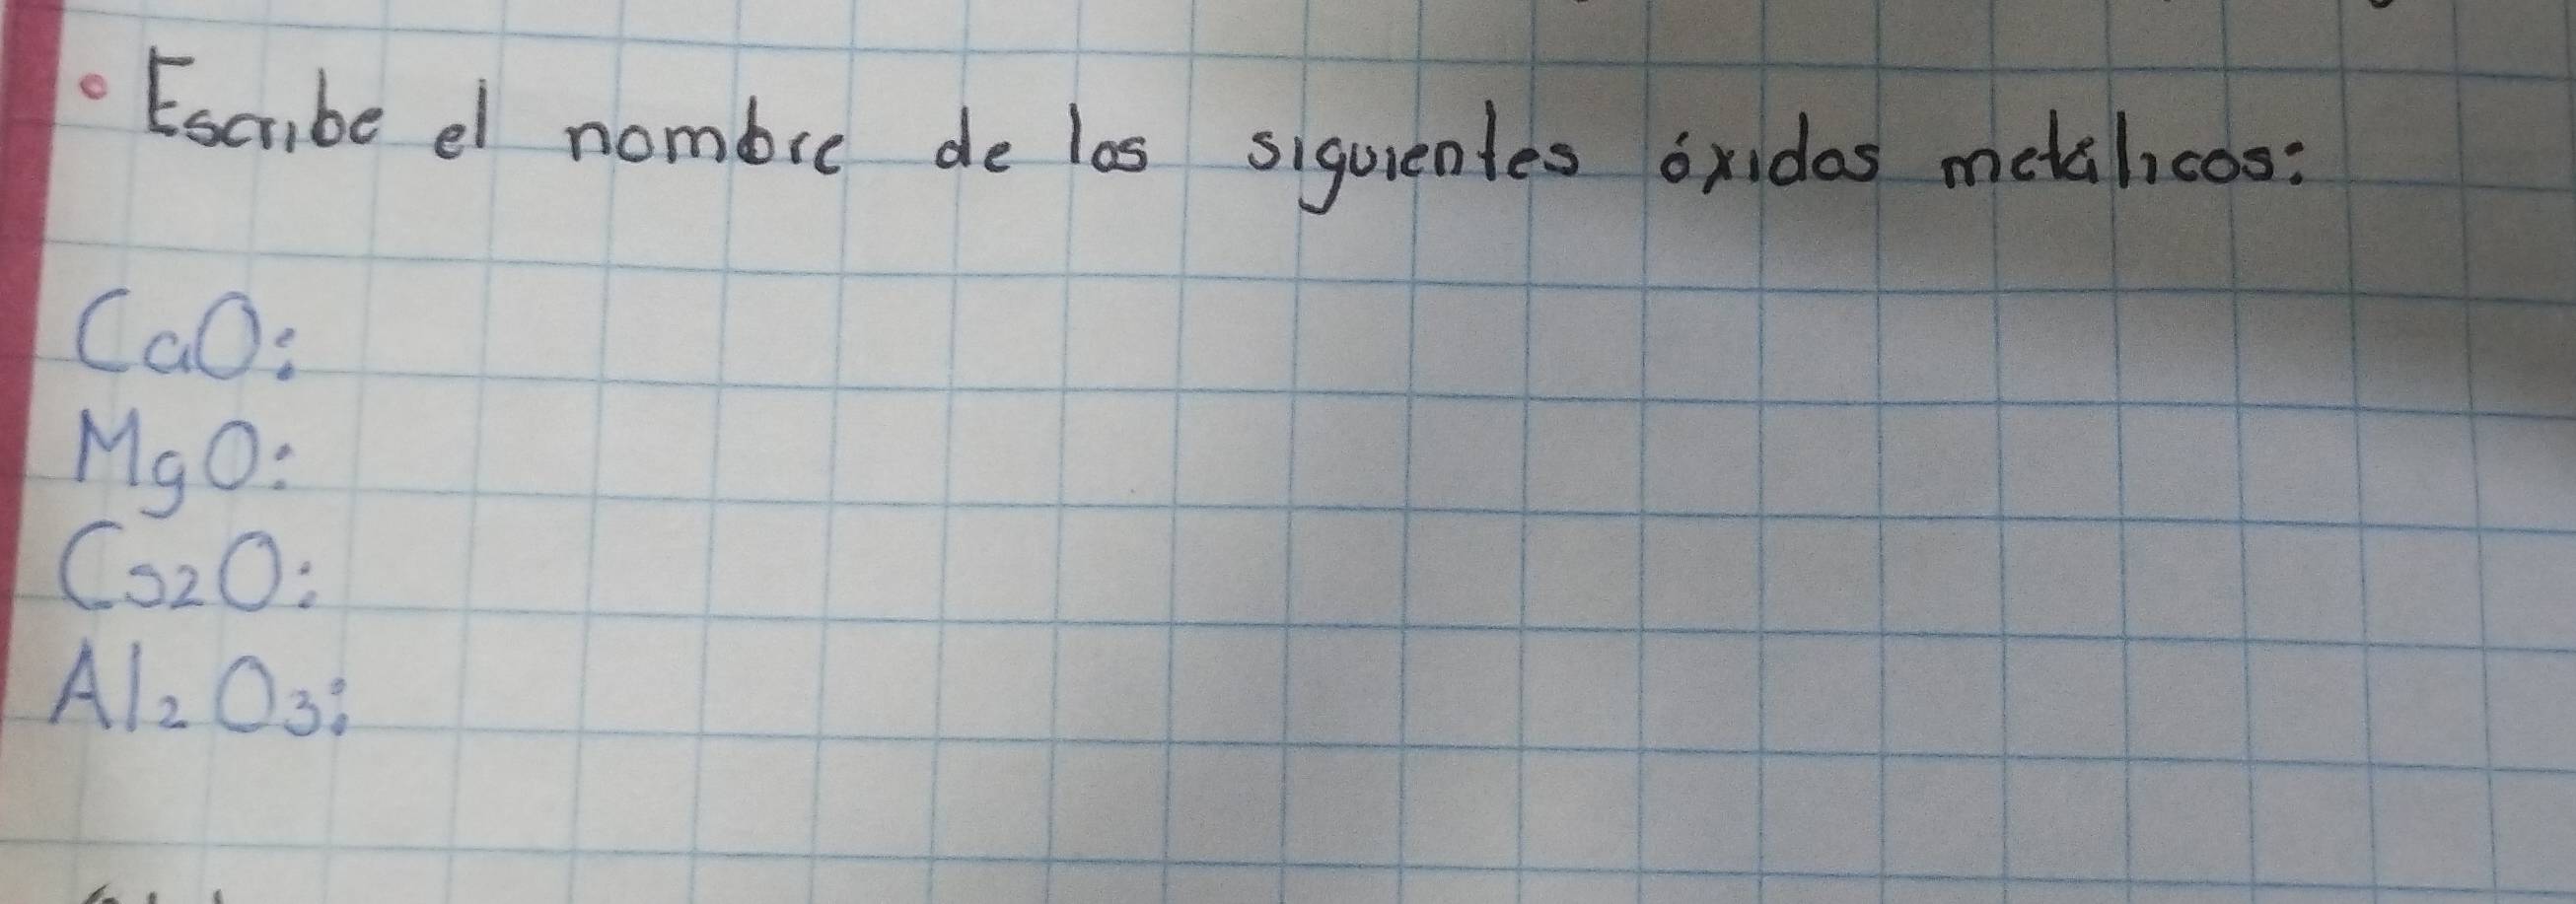 • Escribe el nombre de los siguientes óxidos metálicos:
CaO:
MgO:
Cs2O:
Al2O3: